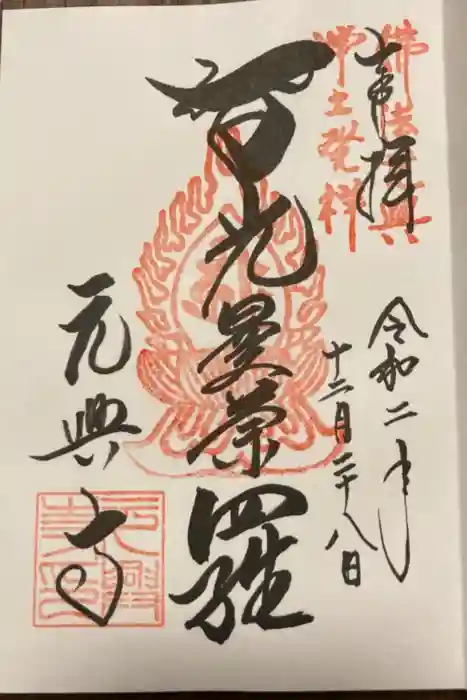 佛法元興
浄土發祥
奉拝
令和二年
十二月二十八日
智光曼荼羅
元興寺